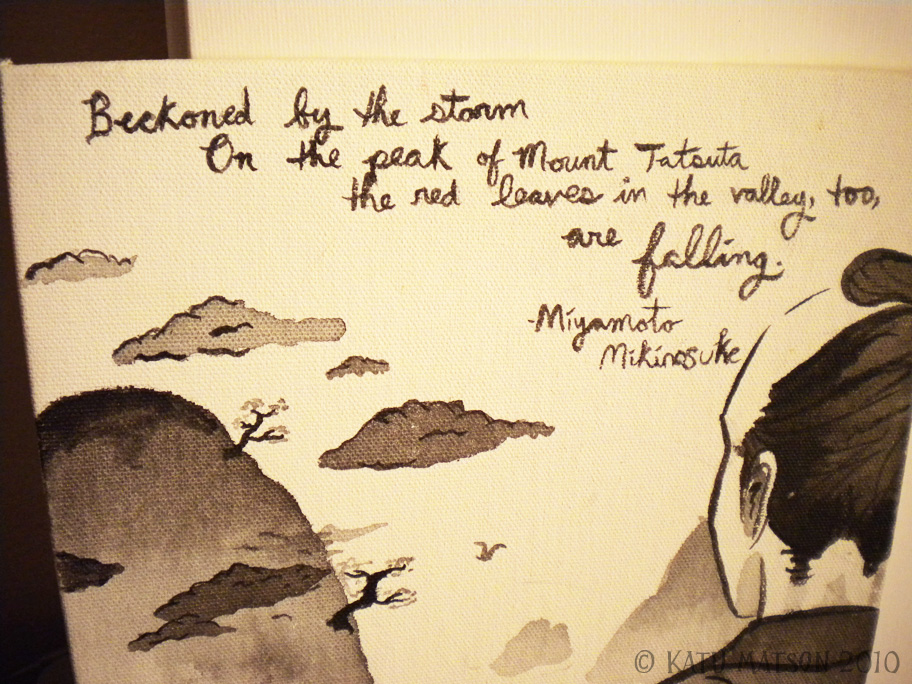 Beckoned by the storm
On the peak of Mount Tatsuta
the red leaves in the valley, too,
are falling.
-Miyamoto
Mikinosuke
© KATY MATSON 2010